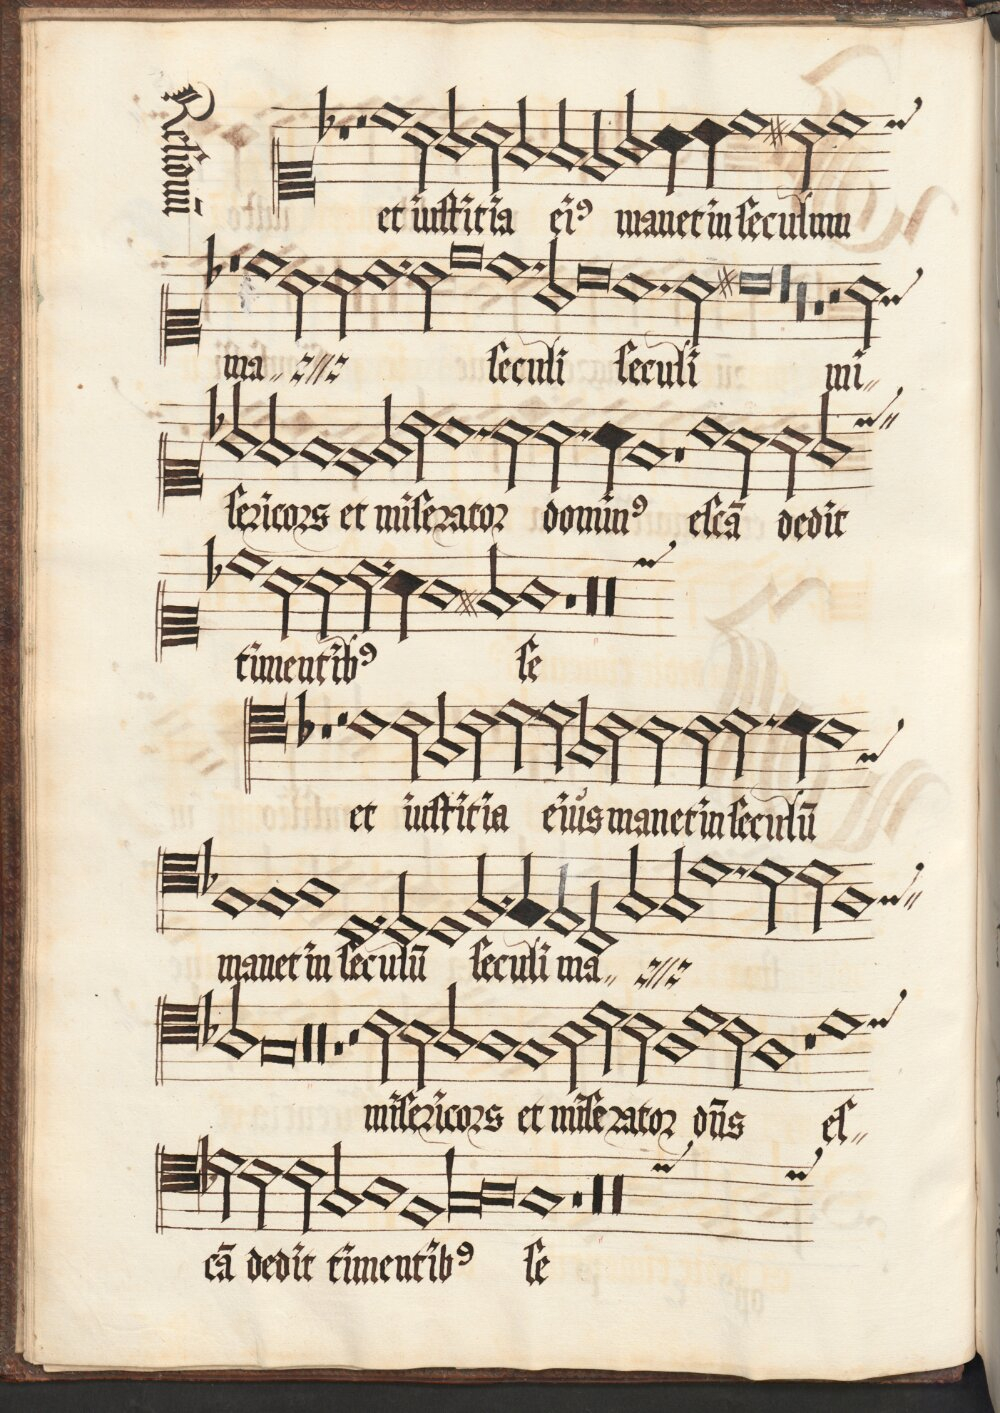 Residuum
et iustitia ei9 manet in seculum
ma seculi seculi mi
sericors et miserator domin9 escā dedit
timentib9 se
et iustitia eius manet in seculū
manet in seculū seculi ma
misericors et miserator dn̄s es
cā dedit timentib9 se